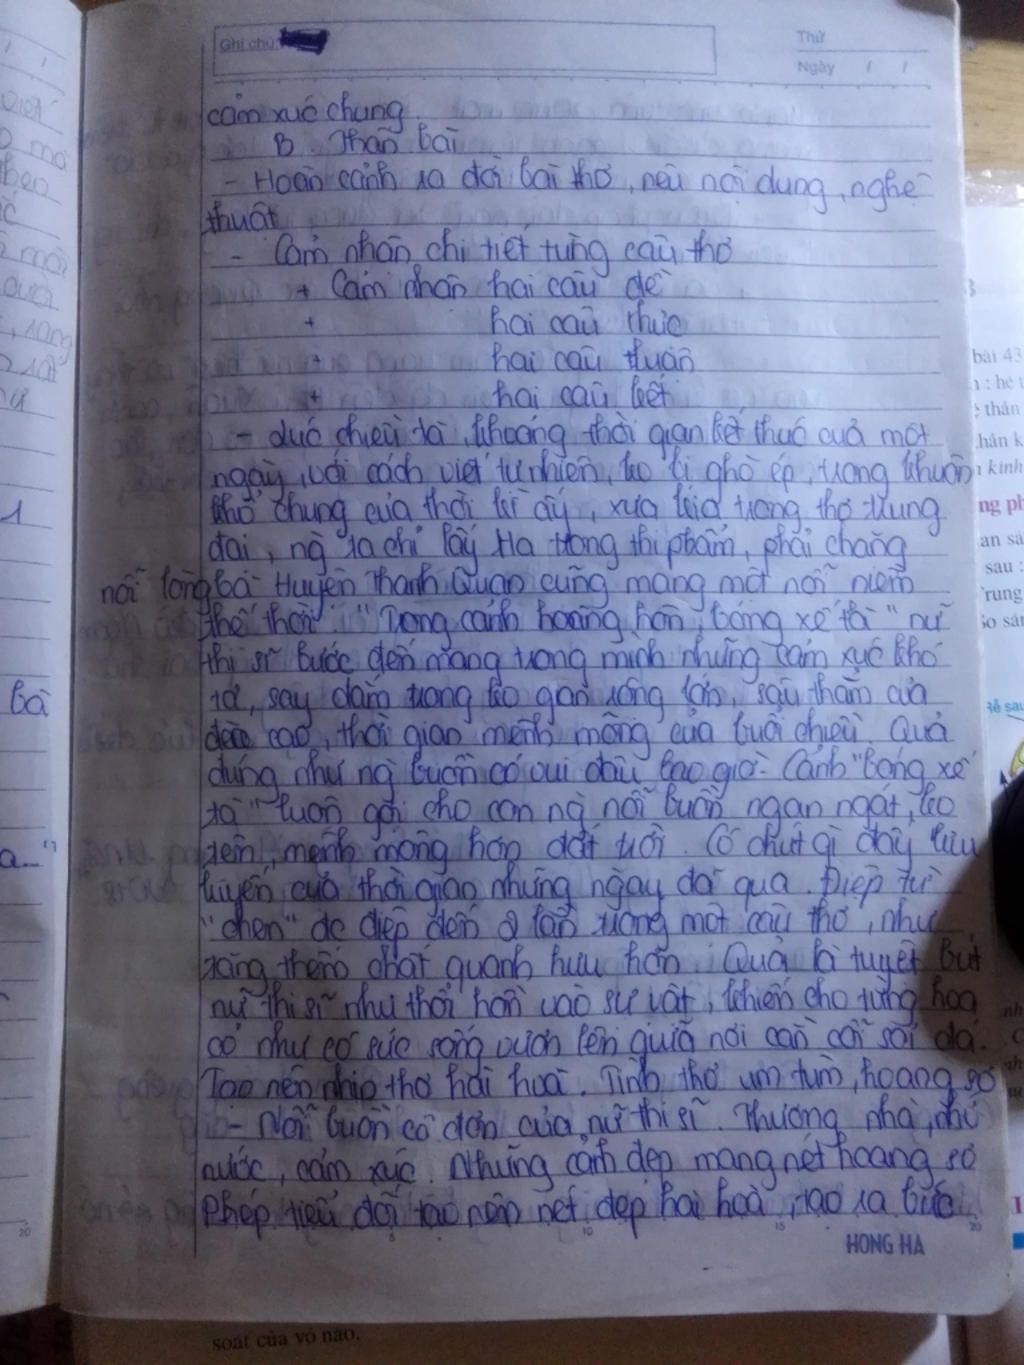 Ghi chú:
Thứ
Ngày / /
cảm xúc chung.
B. Thân bài
- Hoàn cảnh ra đời bài thơ, nêu nội dung, nghệ
thuật
- Cảm nhận chi tiết từng câu thơ
+ Cảm nhận hai câu đề
+ hai câu thực
+ hai câu thuận
+ hai câu kết
- lúc chiều tà, khoảng thời gian kết thúc của một
ngày, với cách viết tự nhiên, ko bị ghò ép, trong khuôn
khổ chung của thời kì ấy, xưa kia trong thơ trung
đại, ng ta chỉ lấy trong thi phẩm, phải chăng
nỗi lòng bà Huyện Thanh Quan cũng mang một nỗi niềm
thế thời "Trong cảnh hoàng hôn, bóng xế tà" nữ
thi sĩ bước đến mang trong mình những cảm xúc khó
tả, say đắm trong ko gian rộng lớn, sâu thẳm của
đèo cao, thời gian mênh mông của buổi chiều. Quả
đúng như ng buồn có vui đâu bao giờ. Cảnh "bóng xế
tà" luôn gợi cho con ng nỗi buồn ngan ngát, ko
tên, mênh mông hơn đất trời. Có chút gì đấy lưu
luyến của thời gian những ngày đã qua. Điệp từ
"chen" đc điệp đến 2 lần trong một câu thơ, như
tăng thêm chất quạnh hưu hơn. Quả là tuyệt bút
nữ thi sĩ như thổi hồn vào sự vật, khiến cho từng hoa
cỏ như có sức sống vươn lên giữa nơi cằn cỗi sỏi đá.
Tạo nên nhịp thơ hài hoà. Tình thơ um tùm, hoang sơ
- Nỗi buồn cô đơn của nữ thi sĩ. Thương nhà, nhớ
nước, cảm xúc. Những cảnh đẹp mang nét hoang sơ
Phép tiểu đối tạo nên nét đẹp hài hoà, tạo ra bức
HONG HA
soát của vỏ não.
bài 43